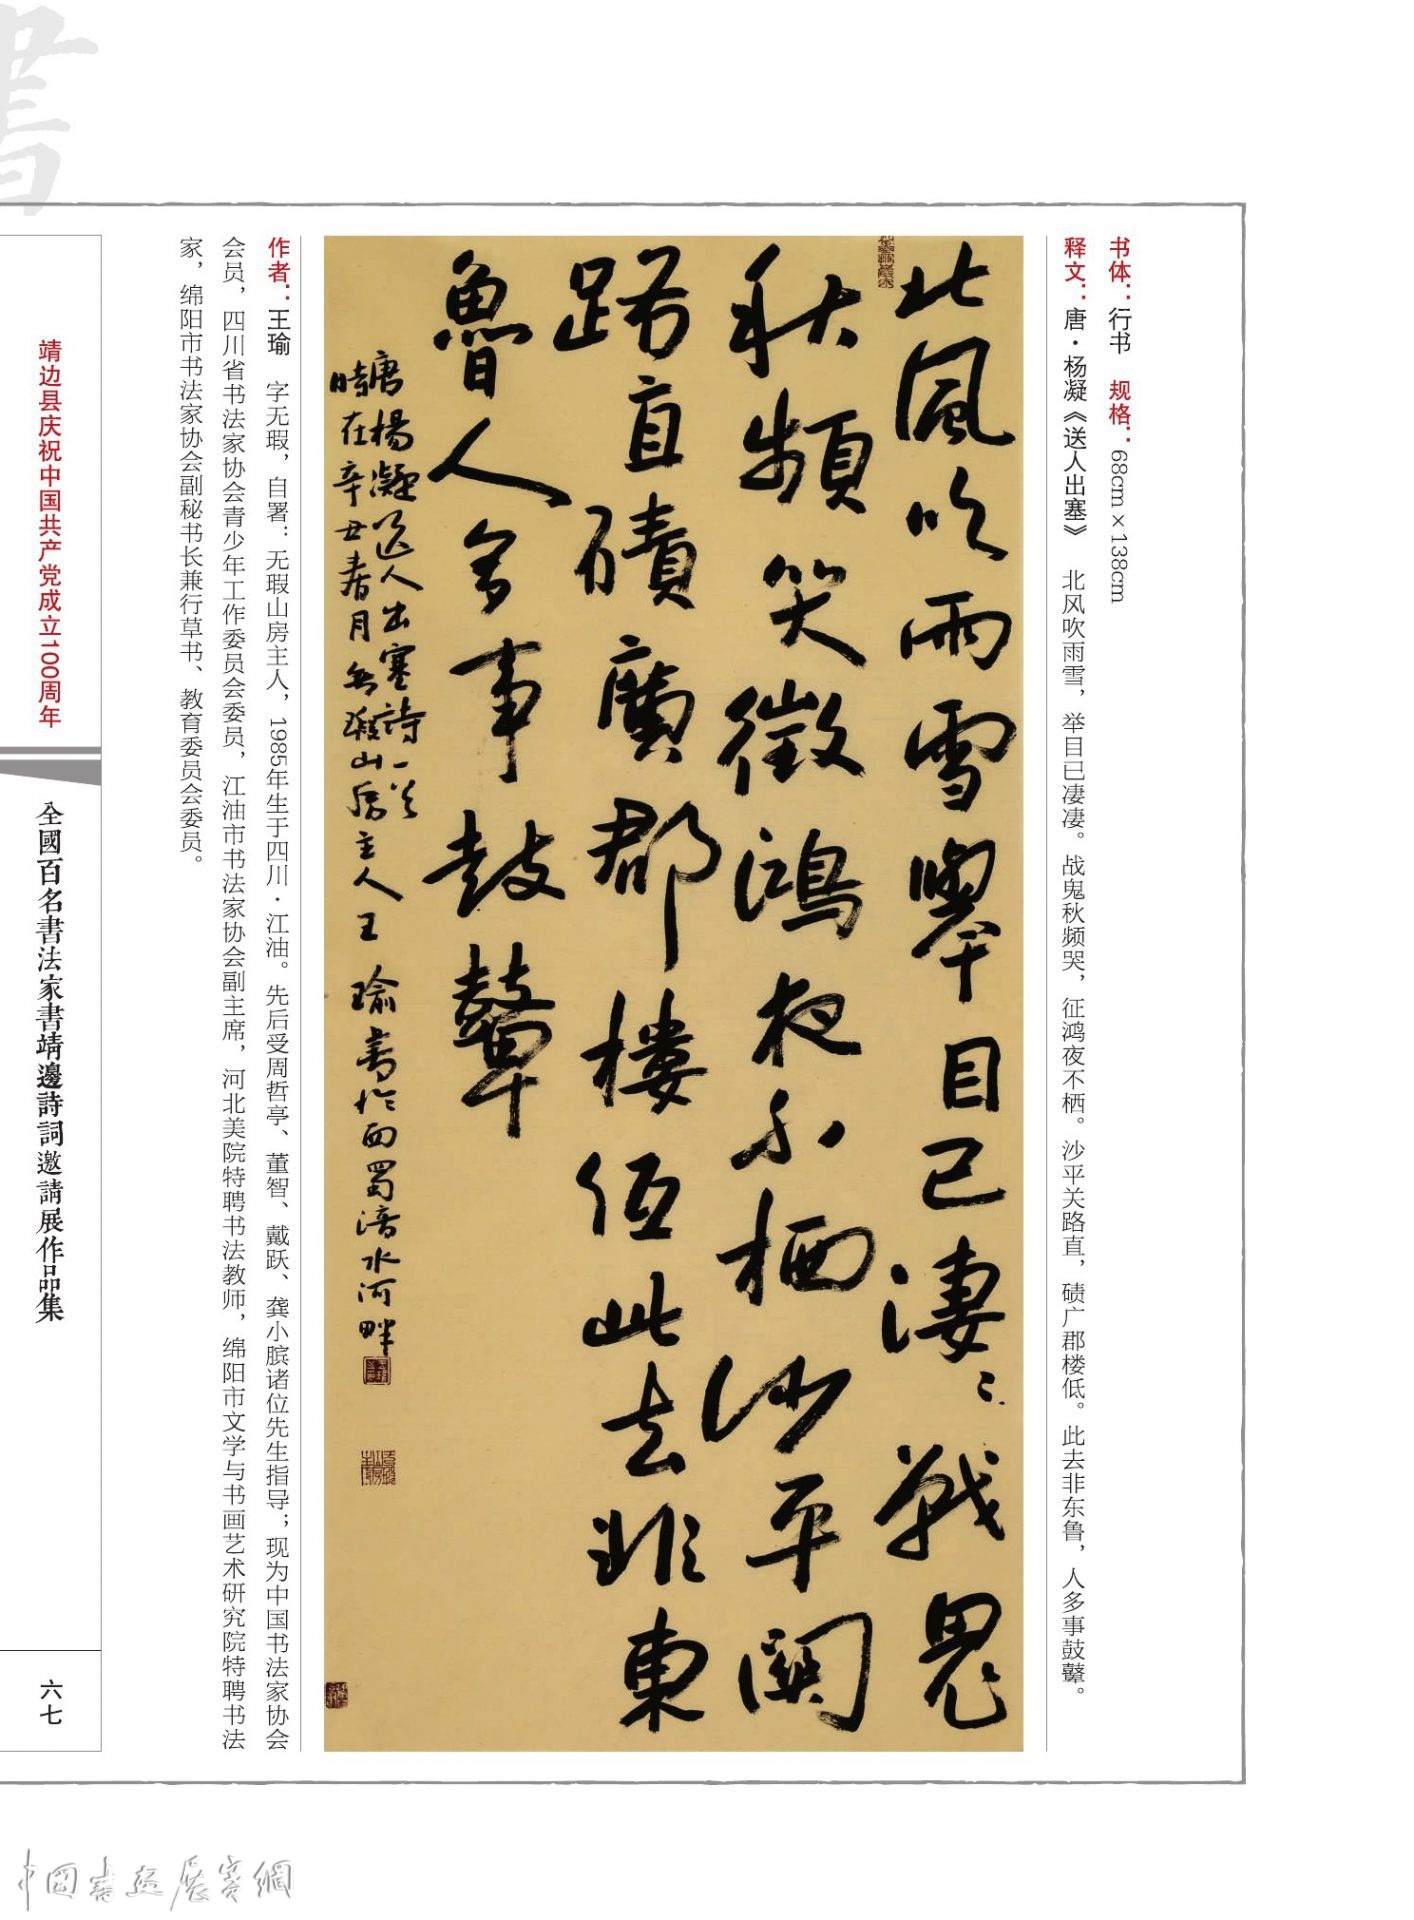 書
书体：行书　规格：68cm×138cm
释文：唐·杨凝《送人出塞》　北风吹雨雪，举目已凄凄。战鬼秋频哭，征鸿夜不栖。沙平关路直，碛广郡楼低。此去非东鲁，人多事鼓鼙。
北風吹雨雪舉目已淒〻戰鬼
秋頻哭徵鴻夜不栖沙平關
路直磧廣郡樓低此去非東
魯人多事鼓鼙
唐楊凝送人出塞詩一首
時在辛丑春月無瑕山房主人王瑜書於西蜀涪水河畔
作者：王瑜　字无瑕，自署：无瑕山房主人，1985年生于四川·江油。先后受周哲亭、董智、戴跃、龚小膑诸位先生指导；现为中国书法家协会
会员，四川省书法家协会青少年工作委员会委员，江油市书法家协会副主席，河北美院特聘书法教师，绵阳市文学与书画艺术研究院特聘书法
家，绵阳市书法家协会副秘书长兼行草书、教育委员会委员。
靖边县庆祝中国共产党成立100周年
全國百名書法家書靖邊詩詞邀請展作品集
六七
中國書畫展賽網